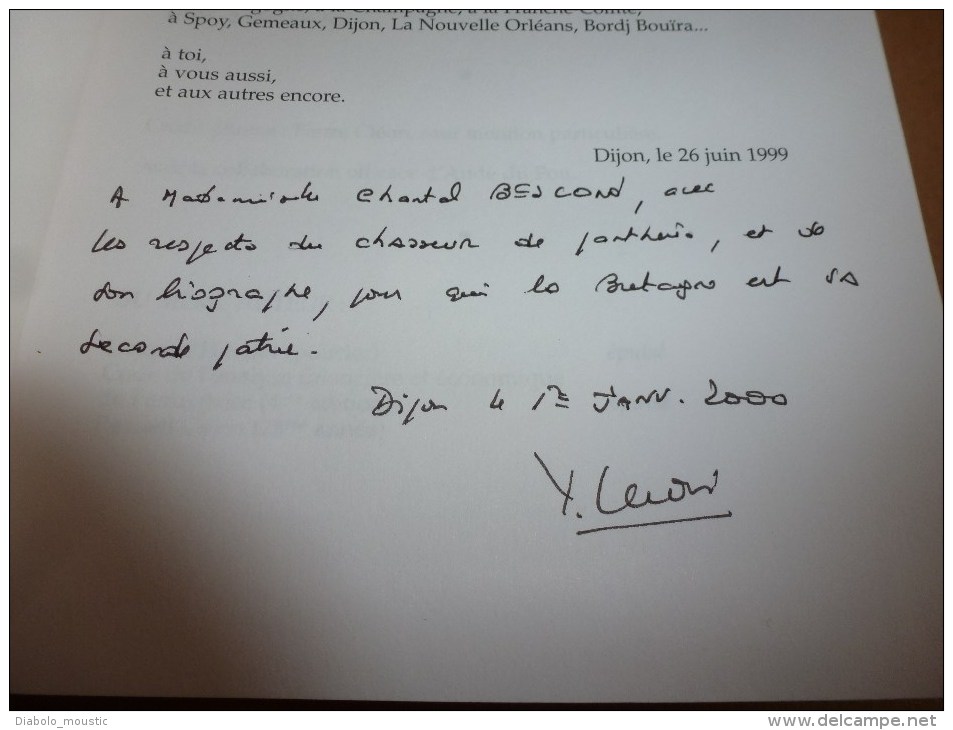 à la Champagne, à la Franche-Comté,
à Spoy, Gemeaux, Dijon, La Nouvelle Orléans, Bordj Bouïra...
à toi,
à vous aussi,
et aux autres encore.
Dijon, le 26 juin 1999
A Mademoiselle Chantal BESCOND, avec
les respects du chasseur de panthères, et de
son biographe, pour qui la Bretagne est sa
seconde patrie.
Dijon le 1er JANV. 2000
Diabolo_moustic
delcampe.net